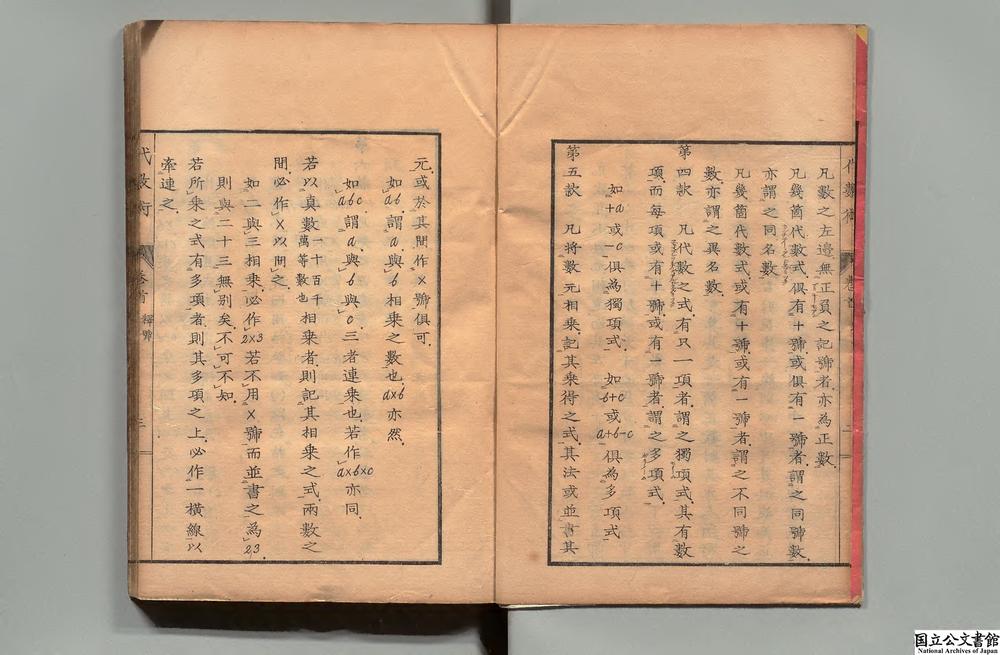 凡數之左邉無正負之記號者亦為正數.
凡幾箇代數式俱有十號或俱有一號者謂之同號數.
亦謂之同名數.
凡幾箇代數式或有十號或有一號者謂之不同號之
數亦謂之異名數.
第四款 凡代數之式有只一項者謂之獨項式其有數
項而每項或有十號或有一號者謂之多項式.
如+a或-c俱為獨項式 如b+c或a+b-c俱為多項式
第五款 凡將數元相乘記其乘得之式其法或並書其
元或於其間作×號俱可.
如ab謂a與b相乘之數也a×b亦然.
如abc謂a與b與c三者連乘也若作a×b×c亦同.
若以真數一十百千萬等數也相乘者則記其相乘之式兩數之
間必作×以間之.
如二與三相乘必作2×3若不用×號而並書之為23.
則與二十三無别矣不可不知.
若所乘之式有多項者則其多項之上必作一横線以
牽連之.
代數術 卷首 釋號 三
国立公文書館
National Archives of Japan